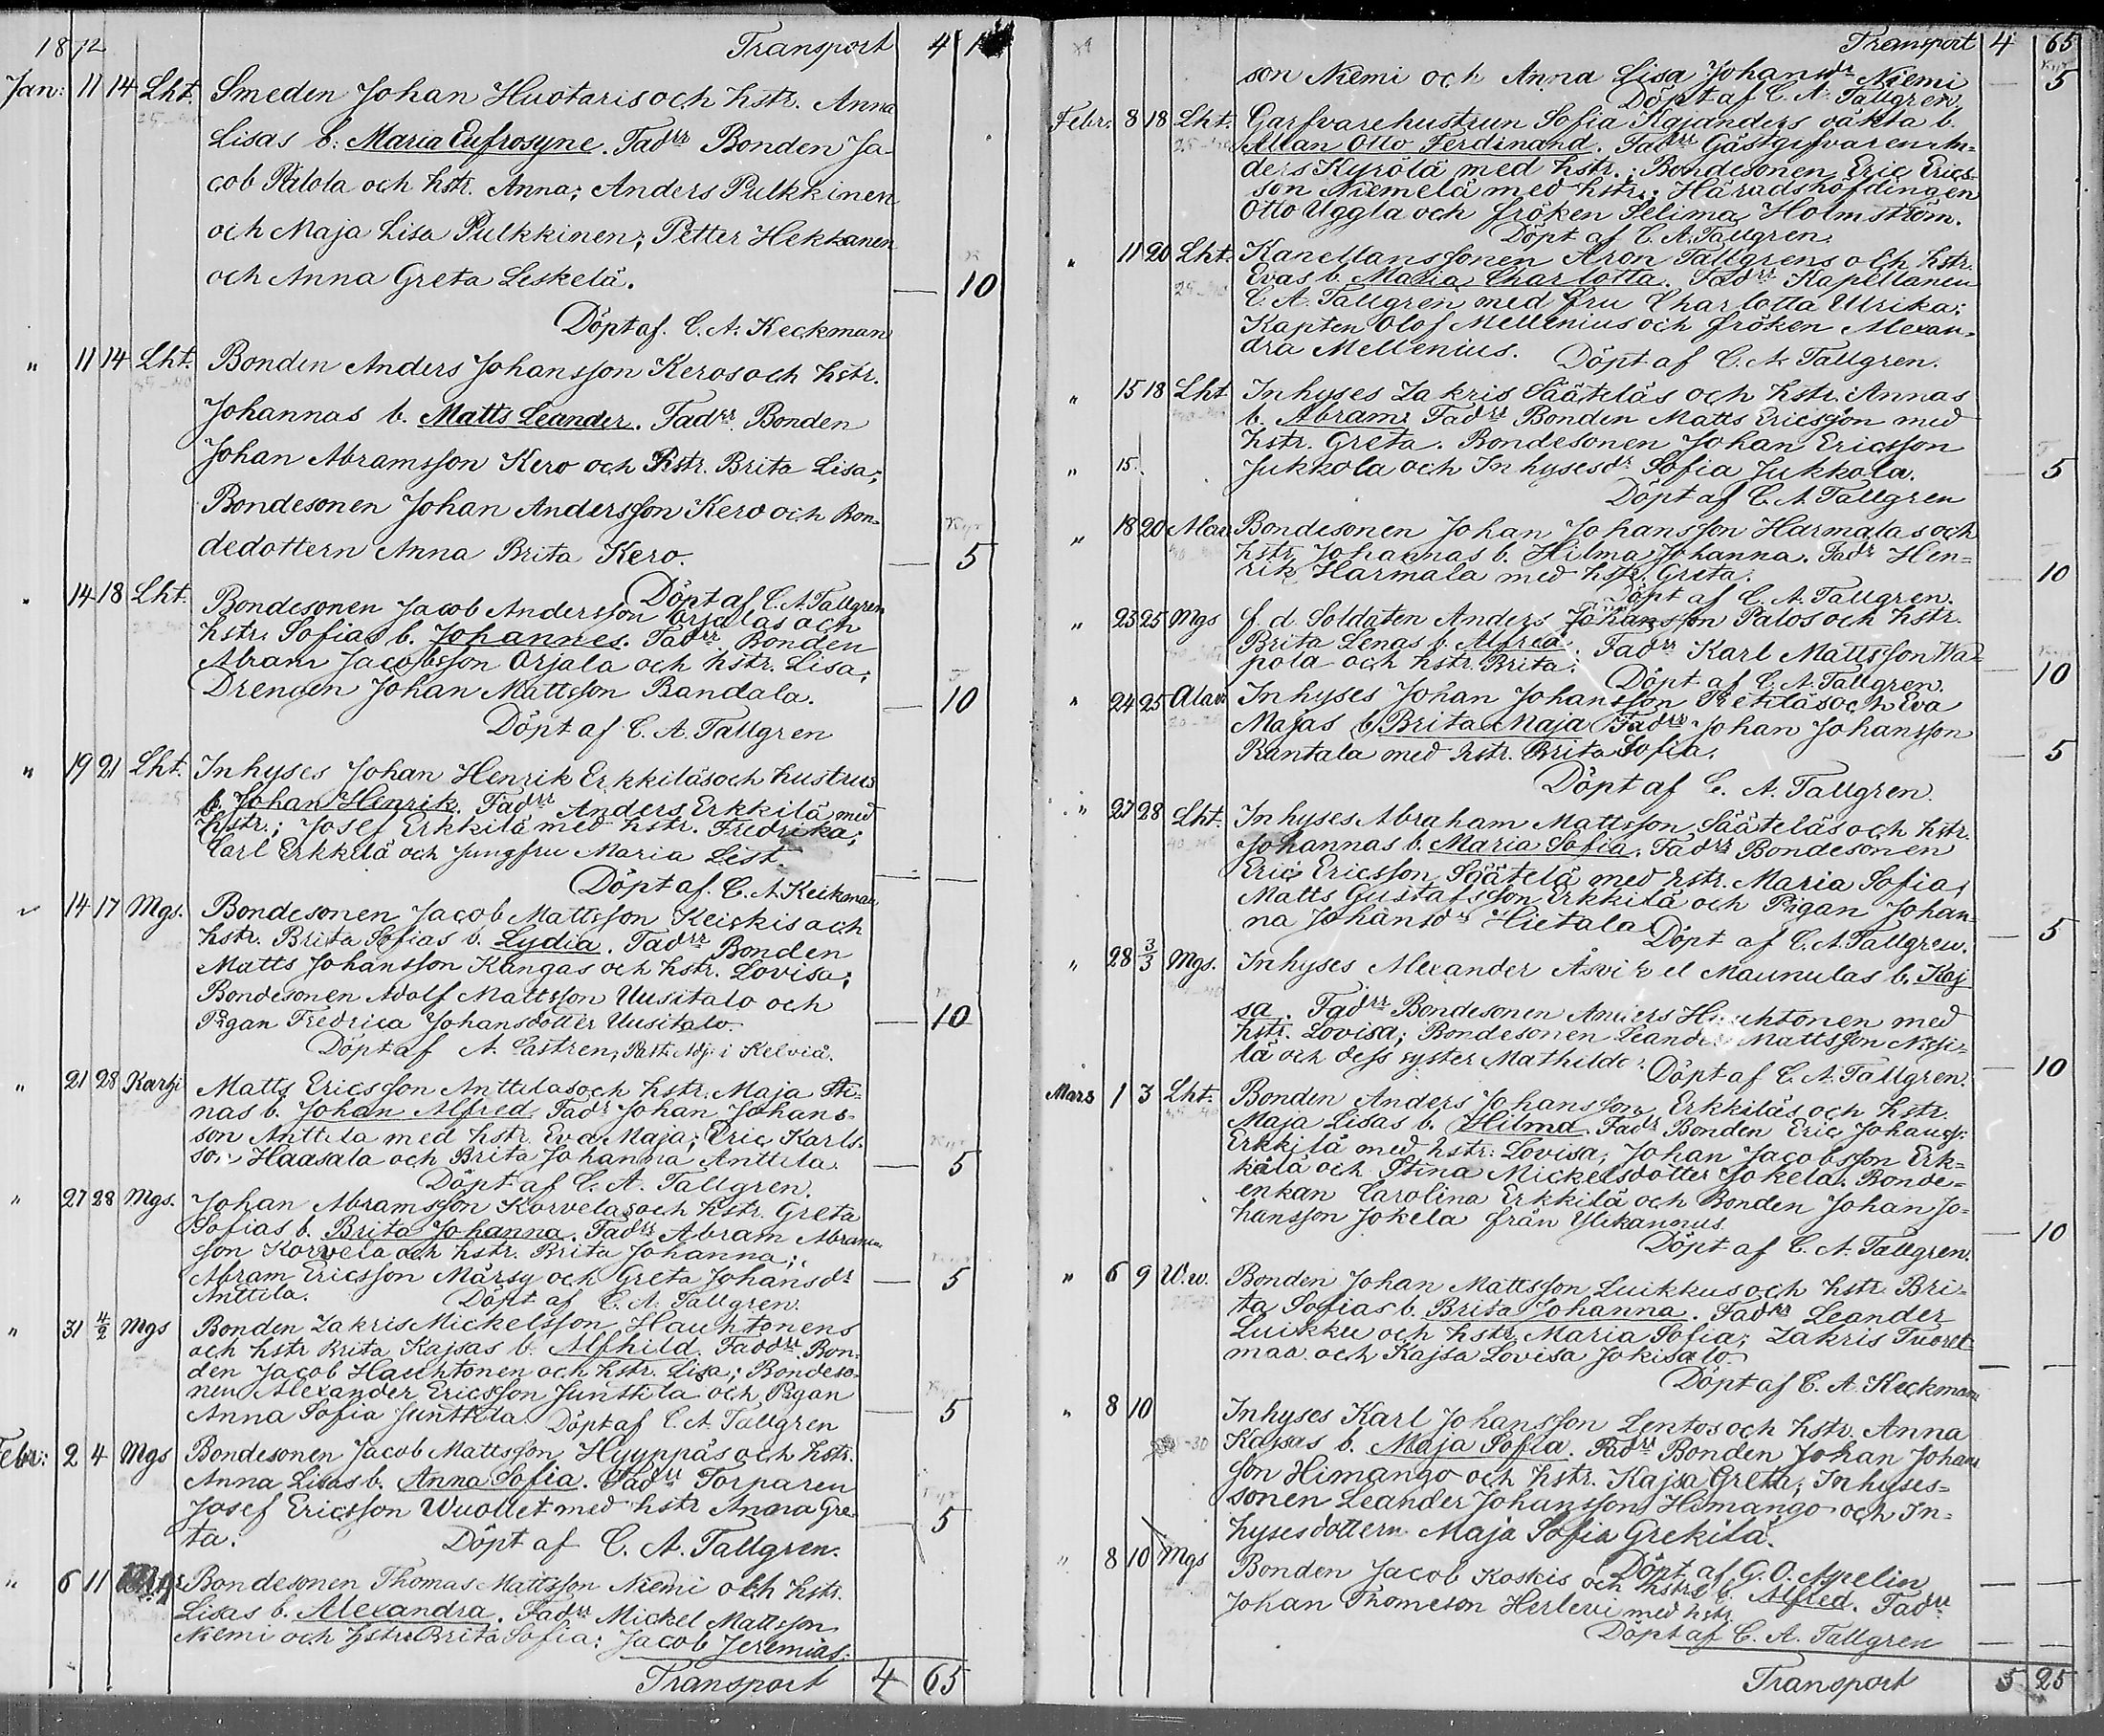 1872 Transport 4 1
Jan: 11 14 Lht. Smeden Johan Huotaris och hstr. Anna
Lisas b: Maria Eufrosyne. Fadrr Bonden Ja-
cob Piilola och hstr. Anna; Anders Pulkkinen
och Maja Lisa Pulkkinen; Petter Hekkanen
och Anna Greta Leskelä. — 10
Döpt af. C. A. Keckman
" 11 14 Lht. Bonden Anders Johansson Keros och hstr.
Johannas b. Matts Leander. Fadrr. Bonden
Johan Abramsson Kero och hstr. Brita Lisa;
Bondesonen Johan Andersson Kero och Bon-
dedottern Anna Brita Kero. — 5
Döpt af C. A. Tallgren
" 14 18 Lht. Bondesonen Jacob Andersson Orjalas och
hstr. Sofias b. Johannes. Fadrr Bonden
Abram Jacobsson Orjala och hstr. Lisa;
Drengen Johan Mattsson Randala. — 10
Döpt af C. A. Tallgren
" 19 21 Lht. Inhyses Johan Henrik Erkkiläs och hustrus
b. Johan Henrik. Fadrr Anders Erkkilä med
hstr.; Josef Erkkilä med hstr. Fredrika;
Carl Erkkilä och Jungfru Maria List.
Döpt af. C. A. Keckman — —
" 14 17 Mgs. Bondesonen Jacob Mattsson Keiskis och
hstr. Brita Sofias b. Lydia. Fadrr Bonden
Matts Johansson Kangas och hstr. Lovisa;
Bondesonen Adolf Mattsson Uusitalo och
Pigan Fredrica Johansdotter Uusitalo. — 10
Döpt af A. Castren, Past. Adj. i Kelviå.
" 21 28 Karhi Matts Ericsson Anttilas och hstr. Maja Sti-
nas b. Johan Alfred. Fadr Johan Johans-
son Anttila med hstr. Eva Maja; Eric Karls-
son Haasala och Brita Johanna Anttila. — 5
Döpt af C. A. Tallgren.
" 27 28 Mgs. Johan Abramsson Korvelas och hstr. Greta
Sofias b. Brita Johanna. Fadrr Abram Abrams-
son Korvela och hstr. Brita Johanna;
Abram Ericsson Märsy och Greta Johansdr — 5
Anttila. Döpt af C. A. Tallgren.
" 31 4/2 Mgs Bonden Zakris Mickelsson Hauhtonens
och hstr Brita Kajsas b. Alfhild. Faddrr Bon-
den Jacob Hauhtonen och hstr. Lisa; Bondeso-
nen Alexander Ericsson Junttila och Pigan
Anna Sofia Junttila. Döpt af C. A. Tallgren — 5
Febr: 2 4 Mgs Bondesonen Jacob Mattsson Hyyppäs och hstr.
Anna Lisas b. Anna Sofia. Fadrr Torparen
Josef Ericsson Wuollet med hstr Anna Gre-
ta. Döpt af C. A. Tallgren. — 5
" 6 11 Bondesonen Thomas Mattsson Niemi och hstr.
Lisas b. Alexandra. Fadrr Mickel Mattsson
Niemi och hstr Brita Sofia; Jacob Jeremias-
Transport 4 65
Transport 4 65
son Niemi och Anna Lisa Johansdr Niemi — 5
Döpt af C. A. Tallgren.
Febr. 8 18 Lht. Garfvarehustrun Sofia Kajanders oäkta b.
Allan Otto Ferdinand. Fadrr Gästgifvaren An-
ders Kyrölä med hstr.; Bondesonen Eric Erics-
son Niemelä med hstr.; Häradshöfdingen
Otto Uggla och fröken Selima Holmström.
Döpt af C. A. Tallgren.
" 11 20 Lht. Kanellanssonen Aron Tallgrens och hstr.
Evas b. Maria Charlotta. Fadrr Kapellanen
C. A. Tallgren med fru Charlotta Ulrika;
Kapten Olof Mellenius och fröken Alexan-
dra Mellenius. Döpt af C. A. Tallgren.
" 15 18 Lht Inhyses Zakris Sääteläs och hstr. Annas
b. Abram. Fadrr Bonden Matts Ericsson med
hstr. Greta. Bondesonen Johan Ericsson
" 15. Jukkola och Inhysesdr Sofia Jukkola. — 5
Döpt af C. A. Tallgren
" 18 20 Alav Bondesonen Johan Johansson Harmalas och
hstr Johannas b. Hilma Johanna. Fadr Hen-
rik Harmala med hstr. Greta. — 10
Döpt af C. A. Tallgren.
" 23 25 Mgs f. d. Soldaten Anders Johansson Palos och hstr.
Brita Lenas b. Alfred. Fadrr Karl Mattsson Wa-
pola och hstr. Brita. — 10
Döpt af C. A. Tallgren.
" 24 25 Alav Inhyses Johan Johansson och Eva
Majas b. Brita Maja Fadrr Johan Johansson
Rantala med hstr. Brita Sofia. — 5
Döpt af C. A. Tallgren.
" 27 28 Lht. Inhyses Abraham Mattsson Säätelas och hstr.
Johannas b. Maria Sofia. Fadrr Bondesonen
Eric Ericsson Säätelä med hstr. Maria Sofia,
Matts Gustafsson Erkkilä och Pigan Johan-
na Johansdr Hietala — 5
Döpt af C. A. Tallgren.
" 28 3/3 Mgs. Inhyses Alexander Åsvik el Maunulas b. Kaj
sa. Fadrr Bondesonen Anders Hauhtonen med
hstr. Lovisa; Bondesonen Leander Mattsson
lä och dess syster Mathilda. — 10
Döpt af C. A. Tallgren.
Mars 1 3 Lht. Bonden Anders Johansson Erkkiläs och hstr.
Maja Lisas b. Hilma. Fadr Bonden Eric Johanss:
Erkkilä med hstr: Lovisa; Johan Jacobsson Erk-
kälä och Stina Mickelsdotter Jokela. Bonde-
enkan Carolina Erkkilä och Bonden Johan Jo-
hansson Jokela från Ylikannus. — 10
Döpt af C. A. Tallgren.
" 6 9 W.w. Bonden Johan Mattsson Luikkus och hstr. Bri-
ta Sofias b. Brita Johanna. Fadrr Leander
Luikku och hstr Maria Sofia; Zakris Tuoret-
maa och Kajsa Lovisa Jokisalo. — —
Döpt af C. A. Keckman
" 8 10 Inhyses Karl Johansson Lentos och hstr. Anna
Kajsas b. Maja Sofia. Fadrr Bonden Johan Johans
son Himango och hstr. Kajsa Greta; Inhyses-
sonen Leander Johansson Himango och In-
hysesdottern Maja Sofia Grekilä.
Döpt af G. O. Appelin — —
" 8 10 Mgs Bonden Jacob Koskis och hstrs b. Alfred. Fadrr
Johan Thomeson Herlevi med hstr.
Döpt af C. A. Tallgren — —
Transport 5 25